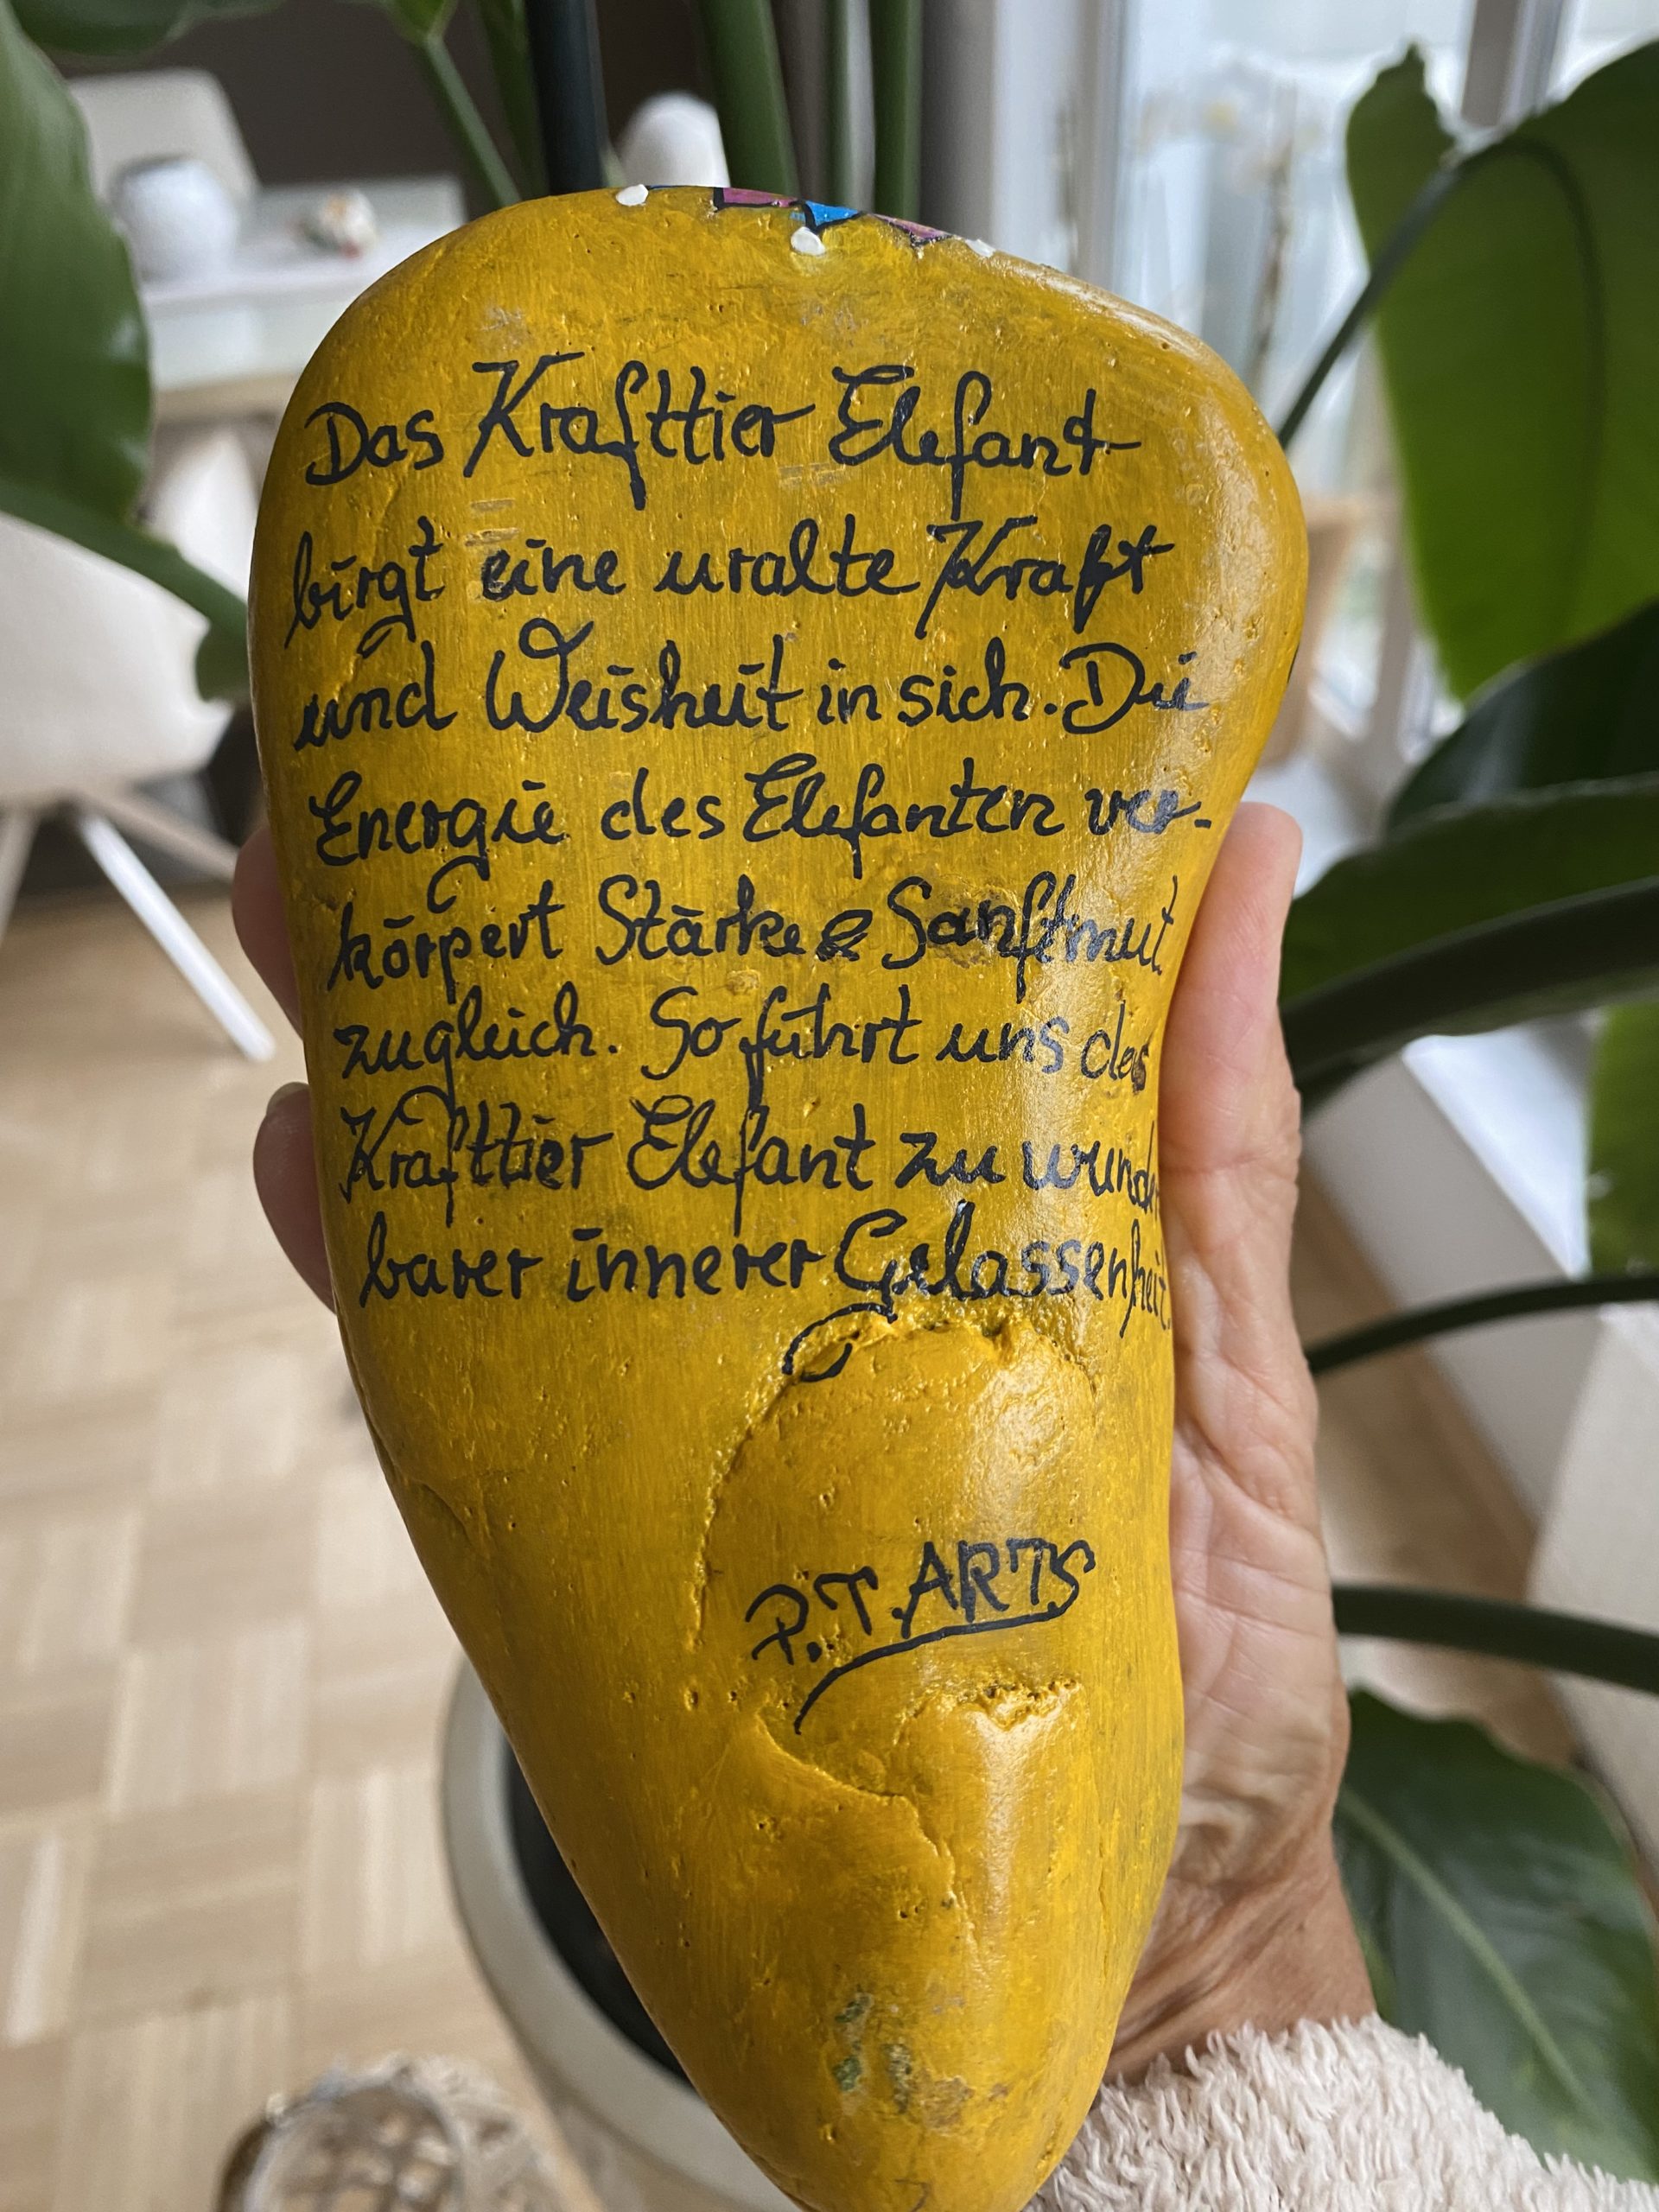 Das Krafttier Elefant
birgt eine uralte Kraft
und Weisheit in sich. Die
Energie des Elefanten ver-
körpert Stärke & Sanftmut
zugleich. So führt uns das
Krafttier Elefant zu wunder
barer innerer Gelassenheit.
P.T.ARTS